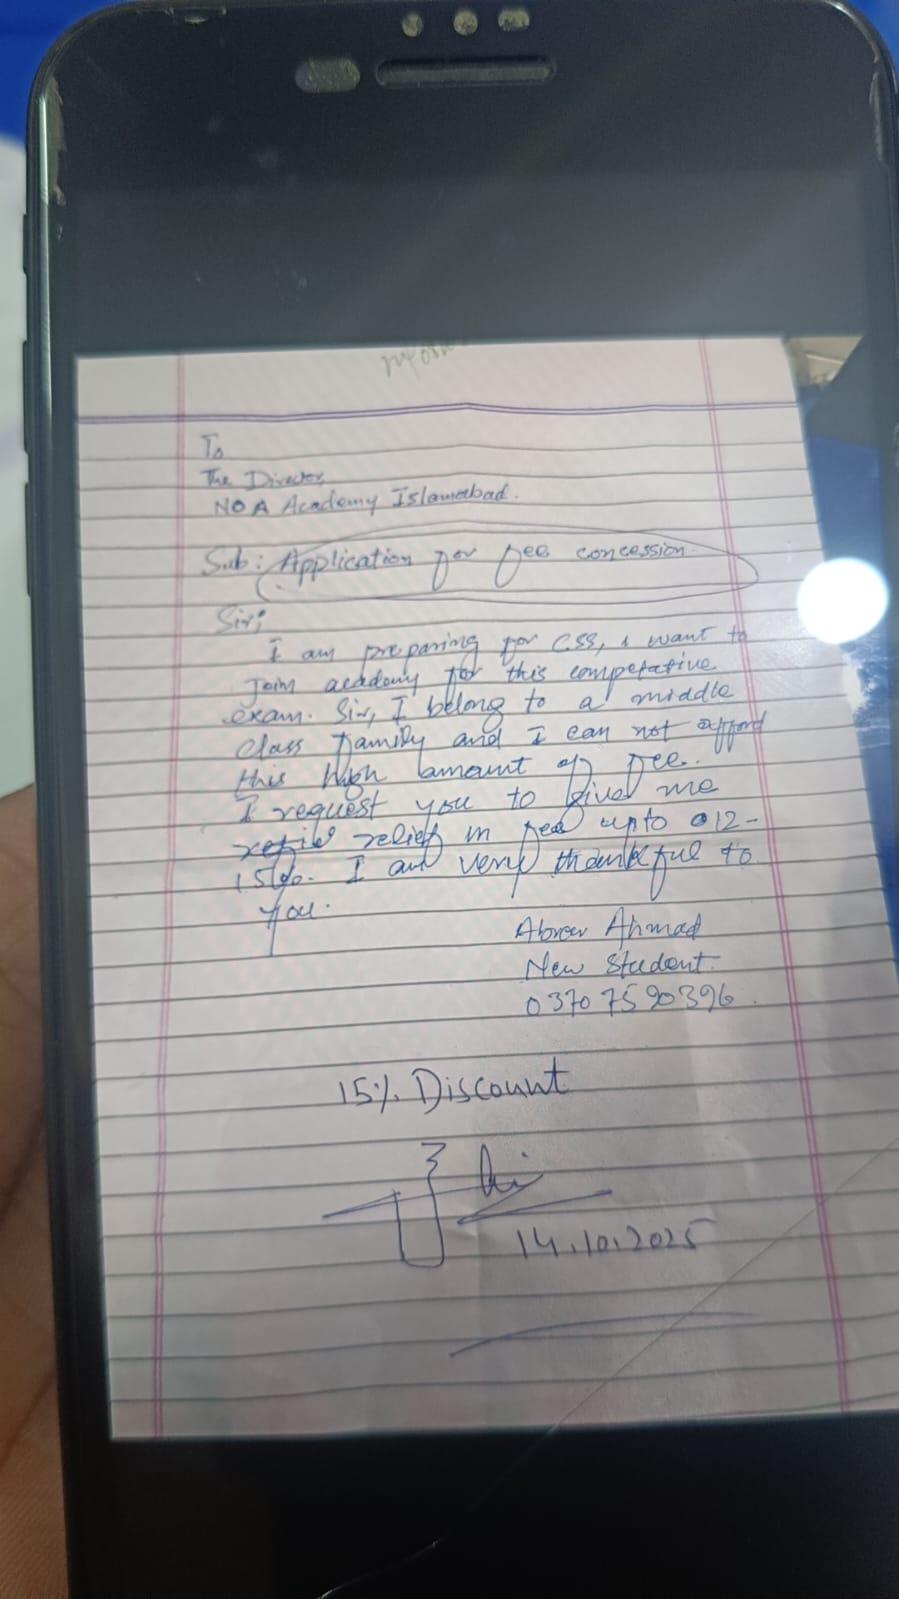 To
The Director,
NOA Academy Islamabad.
Sub: Application for fee concession.
Sir;
I am preparing for CSS, I want to
join acadomy for this competative
exam. Sir, I belong to a middle
class family and I can not afford
this high amount of fee.
I request you to give me
relief in fee upto 12-
15%. I am very thankful to
you.
Ahmad
New Student.
0370 7590396.
15% Discount
14.10.2025